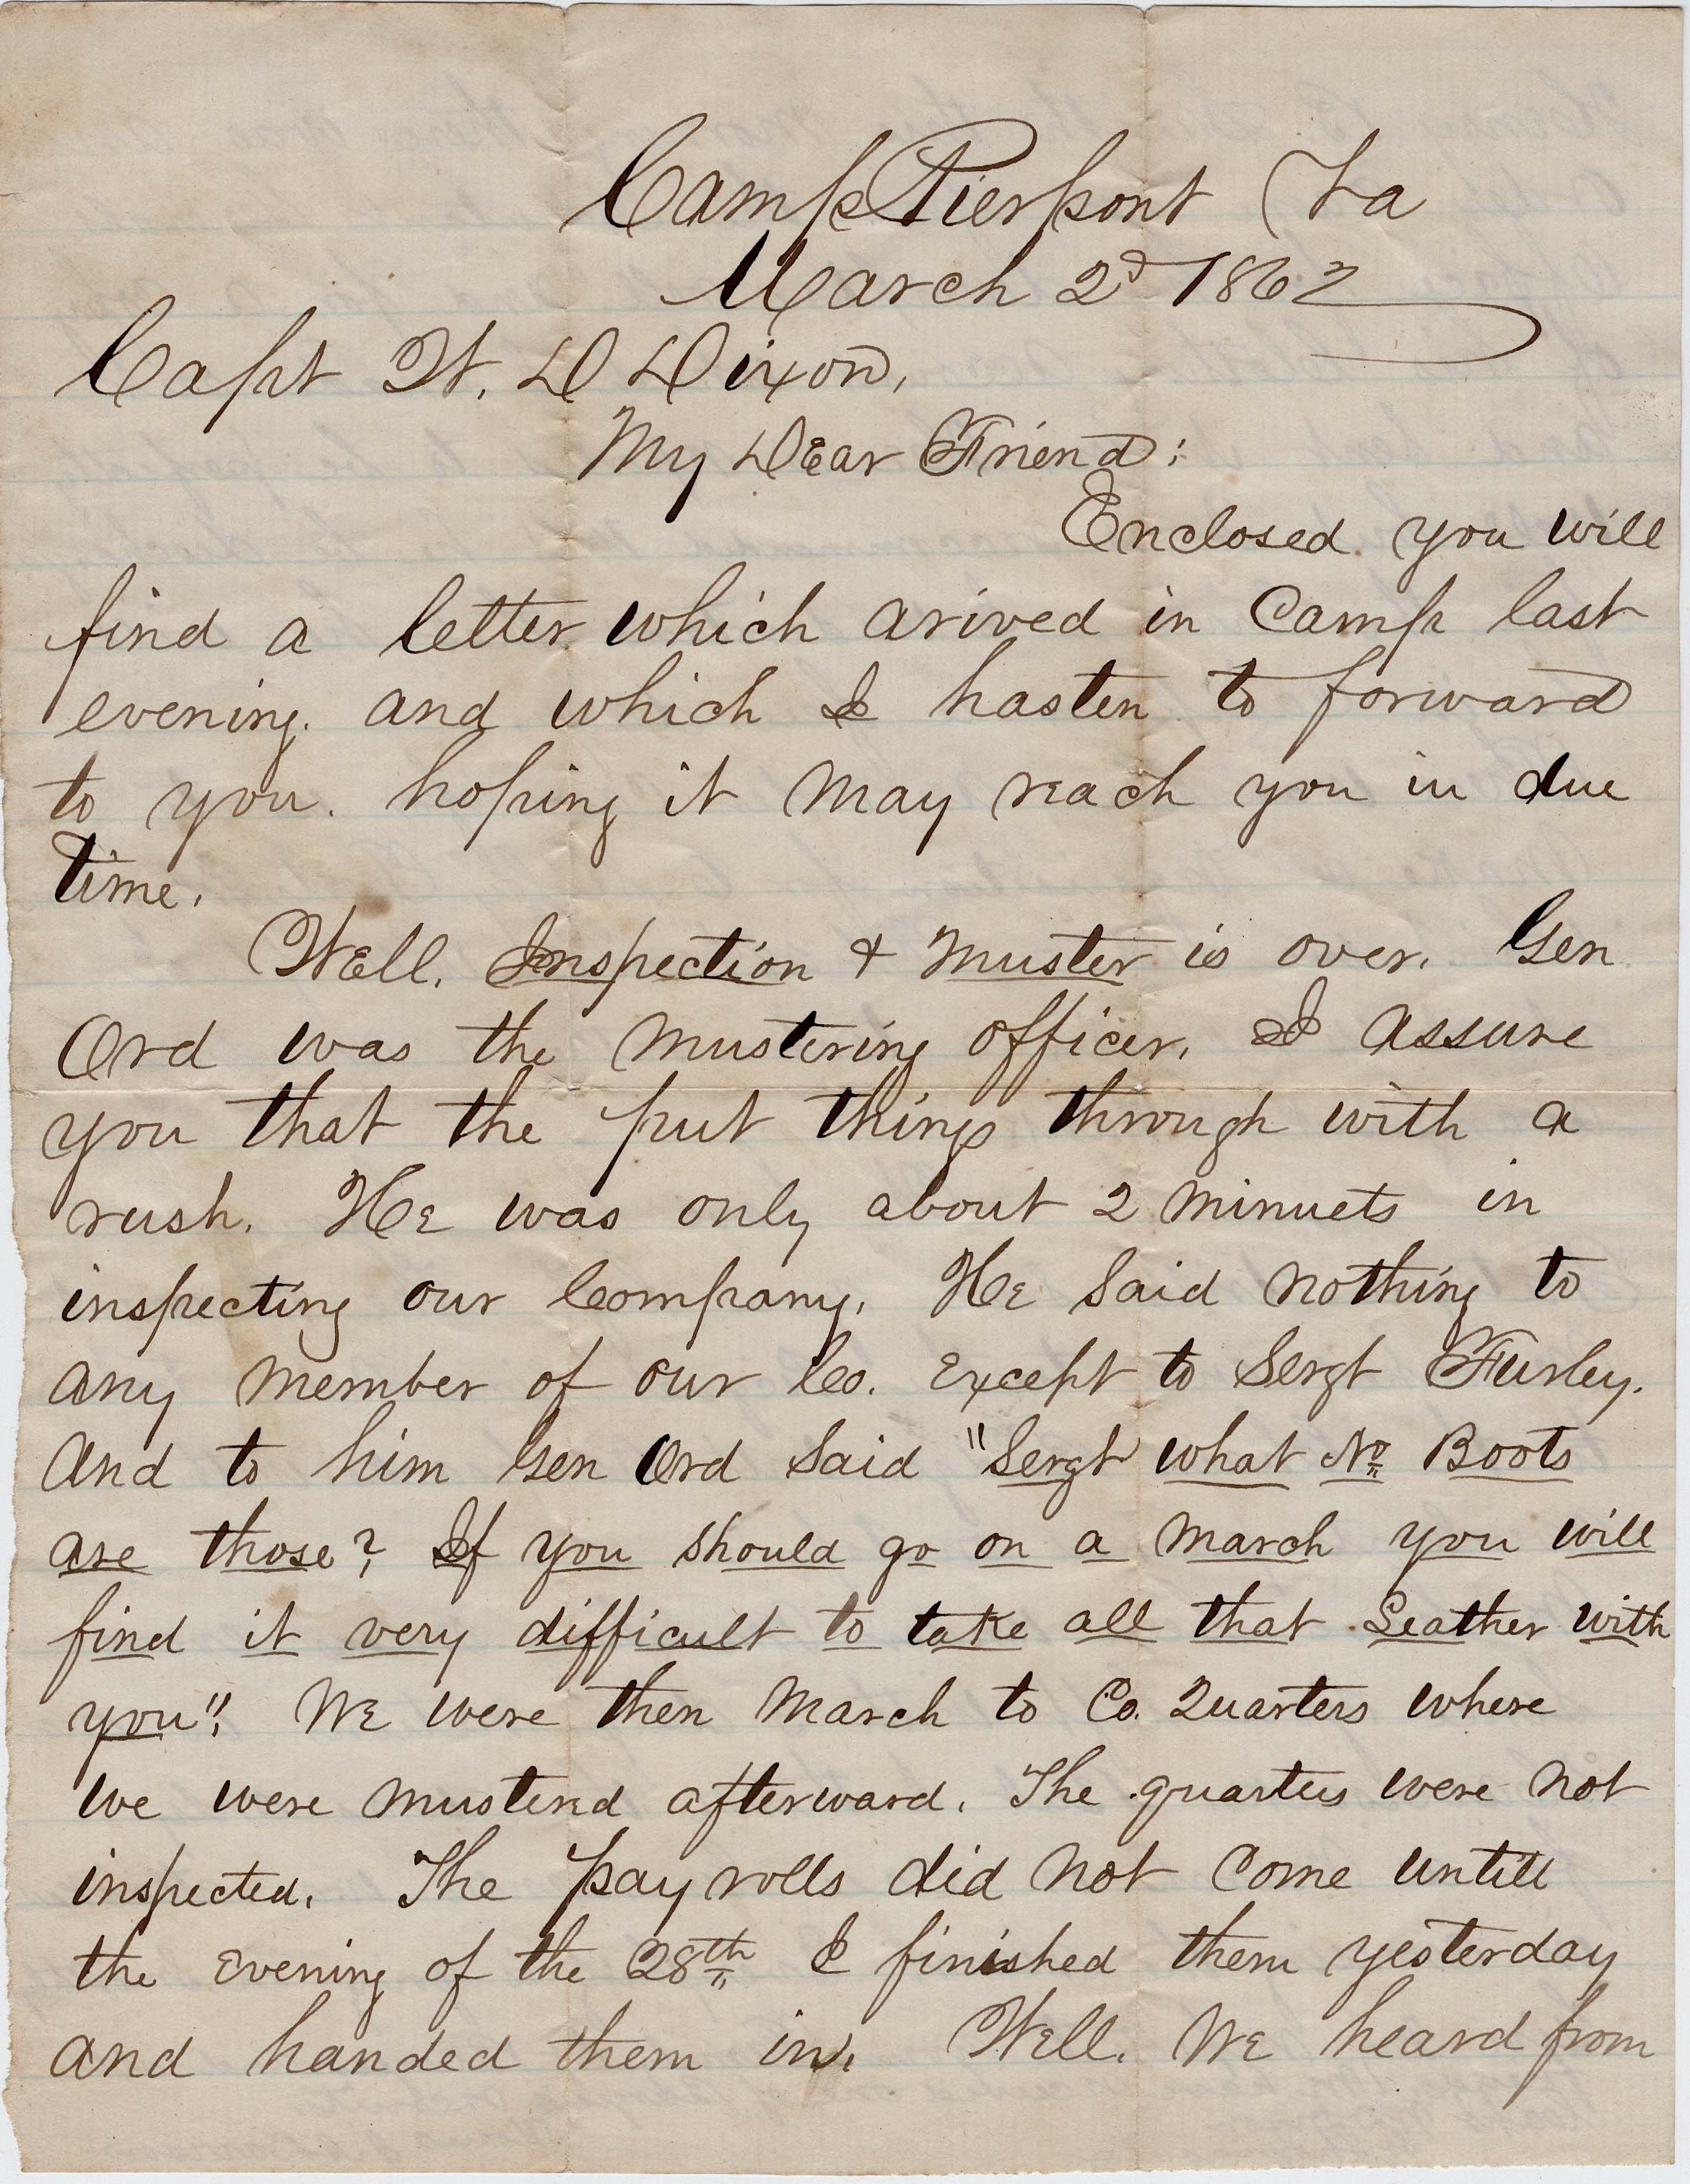 Camp Pierpont Va
March 2d 1862
Capt W. D Dixon,
My Dear Friend;
Enclosed you will
find a letter which arived in Camp last
evening. and which I hasten to forward
to you. hoping it may reach you in due
time.
Well. Inspection & Muster is over. Gen
Ord was the mustering officer. I assure
you that the put things through with a
rush. He was only about 2 minuets in
inspecting our Company. He said nothing to
any member of our Co. except to Sergt Furley.
And to him Gen Ord said "Sergt what No Boots
are those? If you should go on a march you will
find it very difficult to take all that Leather with
you". We were then march to Co. Quarters where
we were mustered afterward. The quarters were not
inspected. The pay rolls did not come untill
the evening of the 28th I finished them yesterday
and handed them in. Well. We heard from